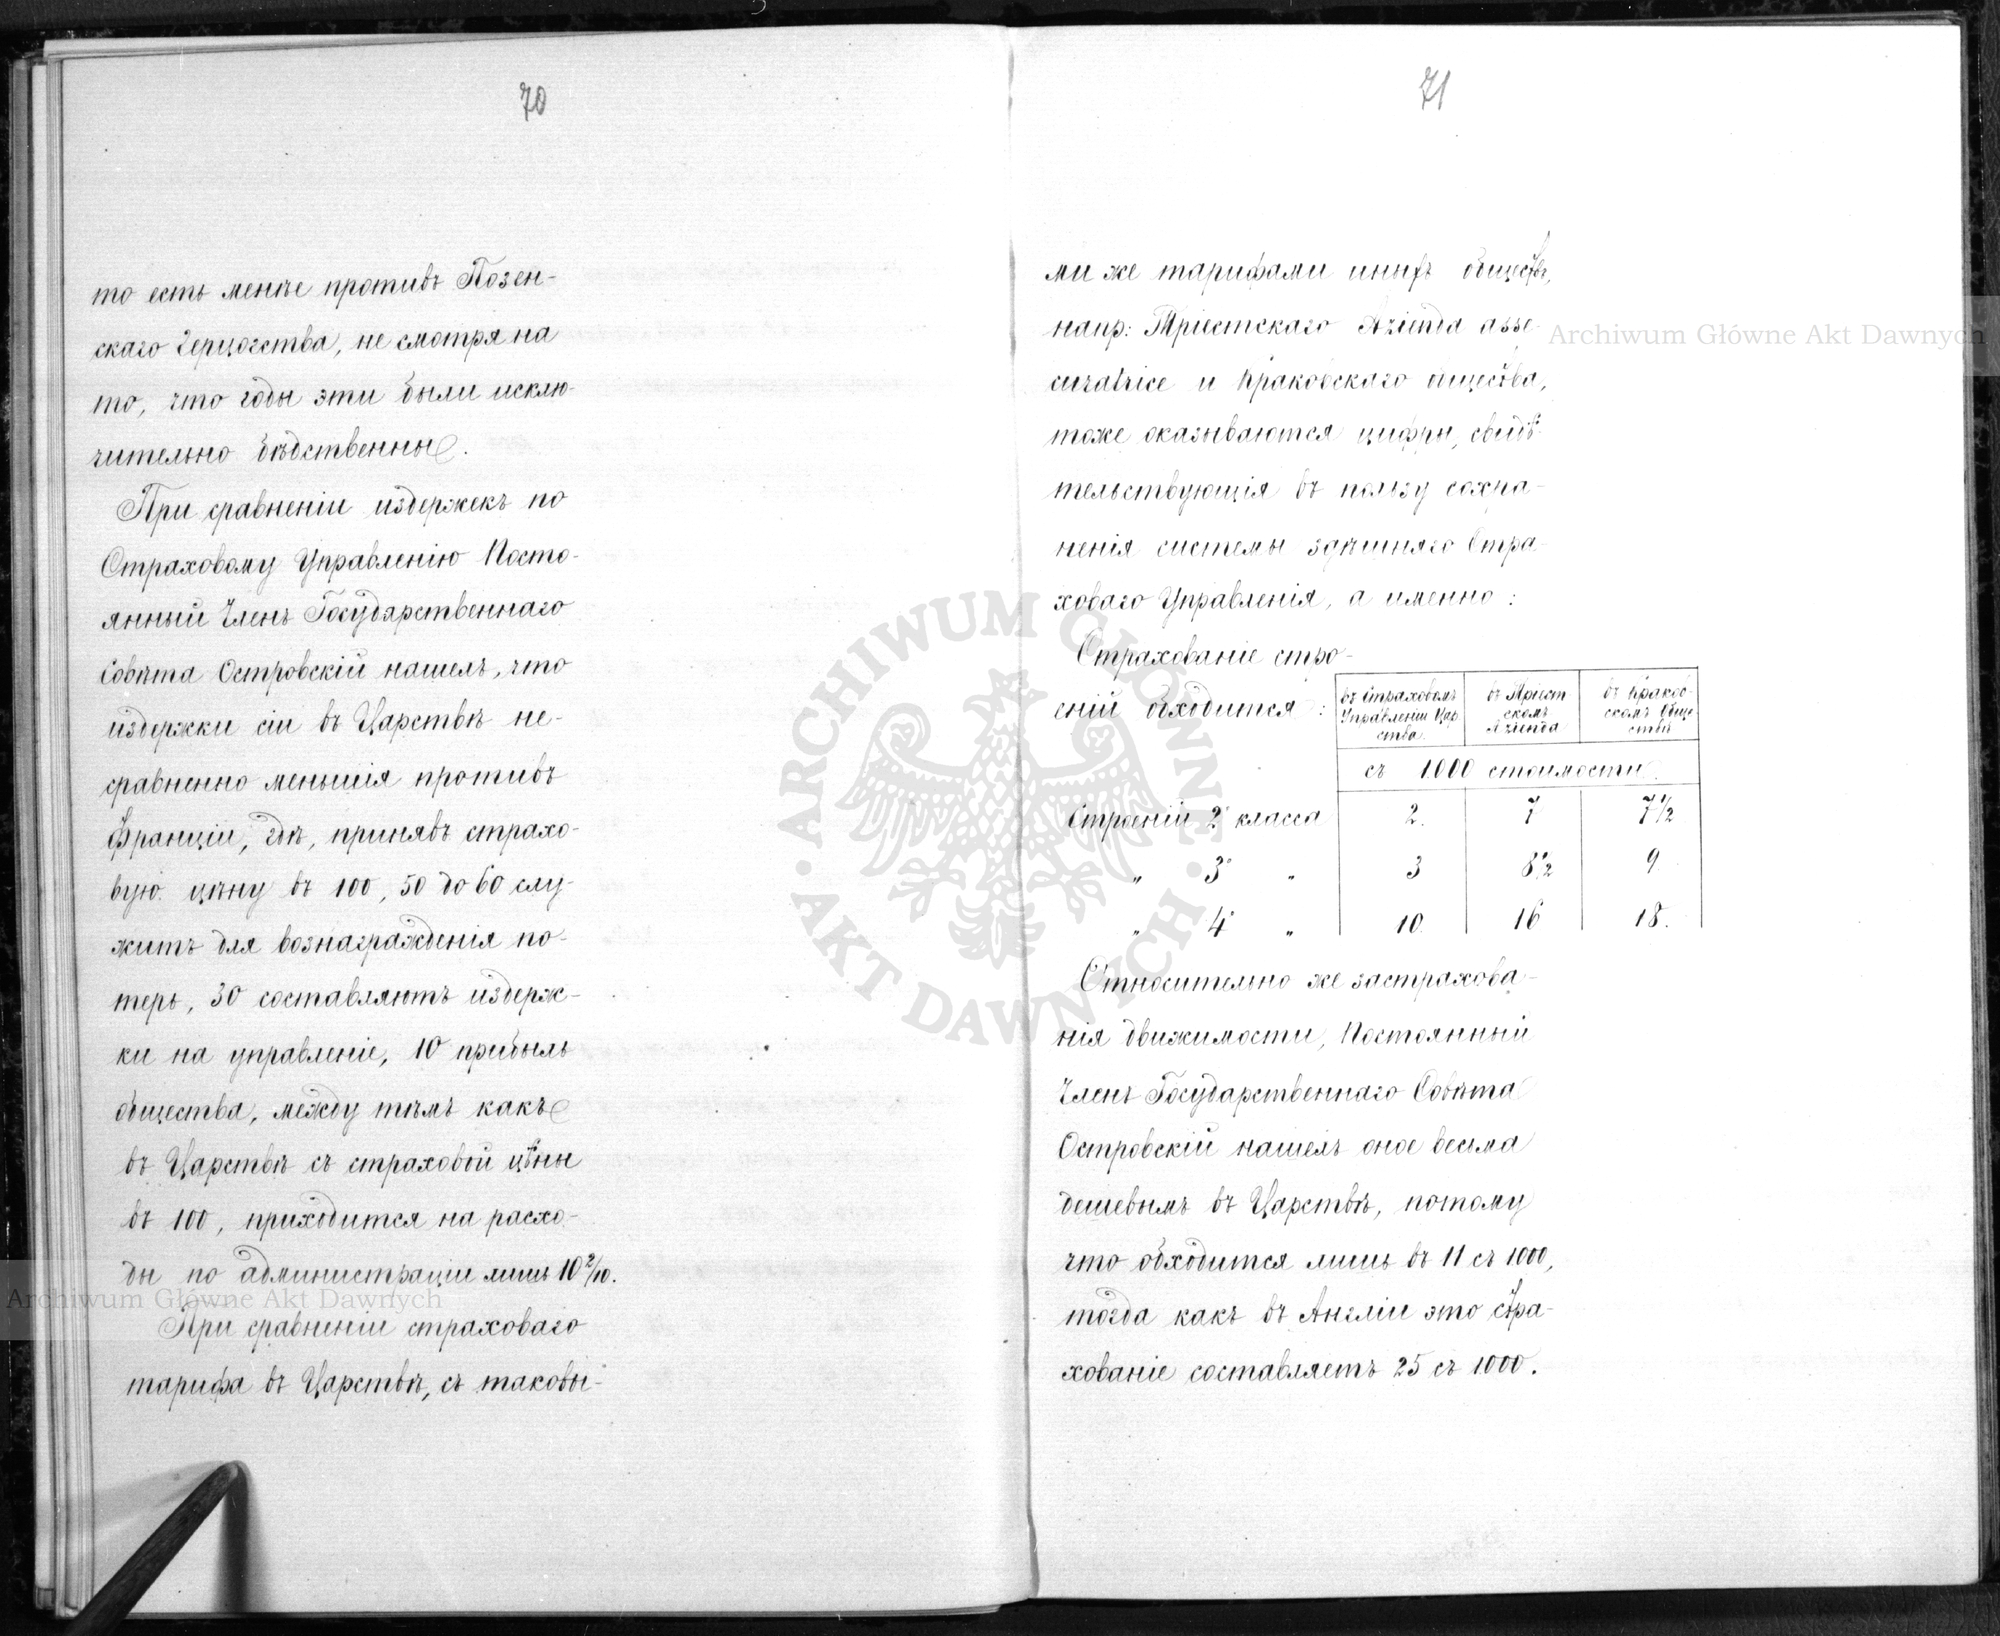 70
то есть менѣе противъ Позен-
скаго Герцогства, не смотря на
то, что годы эти были исклю-
чительно бѣдственны.
При сравненіи издержекъ по
Страховому Управленію Посто-
янный Членъ Государственнаго
Совѣта Островскій нашелъ, что
издержки сіи въ Царствѣ не-
сравненно меньшія противъ
Франціи, гдѣ, принявъ страхо-
вую цѣну въ 100, 50 до 60 слу-
житъ для вознагражденія по-
терь, 30 составляютъ издерж-
ки на управленіе, 10 прибыль
общества, между тѣмъ какъ
въ Царствѣ съ страховой цѣны
въ 100, приходится на расхо-
ды по администраціи лишь 10 2/10.
При сравненіи страховаго
тарифа въ Царствѣ, съ таковы-
71
ми же тарифами иныхъ обществъ,
напр: Тріестскаго Azienda asse-
curatrice и Краковскаго общества,
тоже оказываются цифры, свидѣ-
тельствующія въ пользу сохра-
ненія системы здѣшняго Стра-
ховаго Управленія, а именно:
Страхованіе стро-
еній обходится:
въ Страховомъ Управленіи Цар-ства.
въ Тріест-скомъ Azienda
въ Краков-скомъ Обще-ствѣ
съ 1000 стоимости.
Строеній 2 класса 2. 7 7 1/2
" 3 " 3 8 1/2 9
" 4 " 10. 16 18.
Относительно же застрахова-
нія движимости, Постоянный
Членъ Государственнаго Совѣта
Островскій нашелъ оное весьма
дешевымъ въ Царствѣ, потому
что обходится лишь въ 11 съ 1000,
тогда какъ въ Англіи это стра-
хованіе составляетъ 25 съ 1000.
Archiwum Główne Akt Dawnych
Archiwum Główne Akt Dawnych
ARCHIWUM GŁÓWNE
AKT DAWNYCH